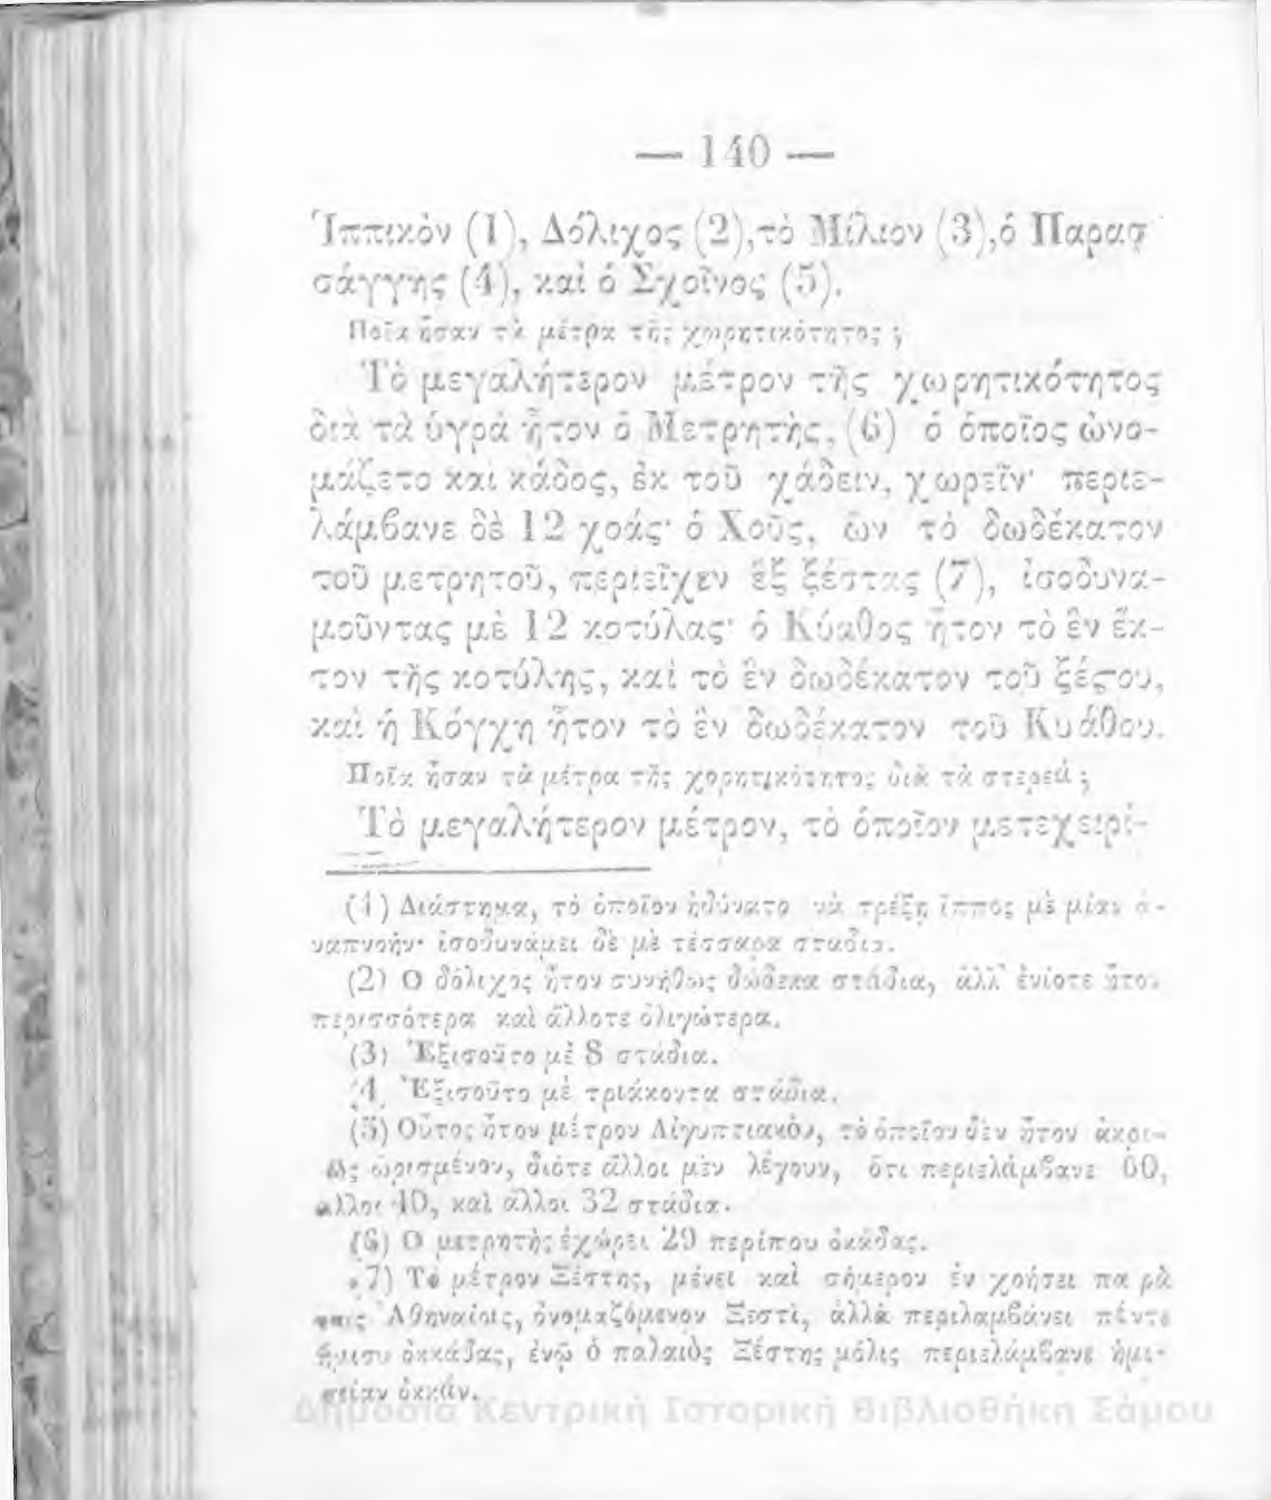 — 140 —
Ἱππικὸν (1), Δόλιχος (2),τὸ Μίλιον (3),ὁ Παρασ
σάγγης (4), καὶ ὁ Σχοῖνος (5).
Ποῖα ἦσαν τὰ μέτρα τῆς χωρητικότητος ;
Τὸ μεγαλήτερον μέτρον τῆς χωρητικότητος
διὰ τὰ ὑγρὰ ἦτον ὁ Μετρητὴς, (6) ὁ ὁποῖος ὠνο-
μάζετο καὶ κάδος, ἐκ τοῦ χάδειν, χωρεῖν· περιε-
λάμβανε δὲ 12 χοάς· ὁ Χοῦς, ὢν τὸ δωδέκατον
τοῦ μετρητοῦ, περιεῖχεν ἓξ ξέστας (7), ἰσοδυνα-
μοῦντας μὲ 12 κοτύλας· ὁ Κύαθος ἦτον τὸ ἓν ἕκ-
τον τῆς κοτύλης, καὶ τὸ ἓν δωδέκατον τοῦ ξέστου,
καὶ ἡ Κόγχη ἦτον τὸ ἓν δωδέκατον τοῦ Κυάθου.
Ποῖα ἦσαν τὰ μέτρα τῆς χορητικότητος διὰ τὰ στερεά ;
Τὸ μεγαλήτερον μέτρον, τὸ ὁποῖον μετεχειρί-
(1) Διάστημα, τὸ ὁποῖον ἠδύνατο νὰ τρέξῃ ἵππος μὲ μίαν ἀ-
ναπνοήν· ἰσοδυνάμει δὲ μὲ τέσσαρα στάδια.
(2) Ὁ δόλιχος ἦτον συνήθως δώδεκα στάδια, ἀλλ' ἐνίοτε ἦτον
περισσότερα καὶ ἄλλοτε ὀλιγώτερα.
(3) Ἐξισοῦτο μὲ 8 στάδια.
(4) Ἐξισοῦτο μὲ τριάκοντα στάδια.
(5) Οὗτος ἦτον μέτρον Αἰγυπτιακὸν, τὸ ὁποῖον δὲν ἦτον ἀκρι-
βῶς ὡρισμένον, διότε ἄλλοι μὲν λέγουν, ὅτι περιελάμβανε 60,
ἄλλοι 40, καὶ ἄλλοι 32 στάδια.
(6) Ὁ μετρητὴς ἐχώρει 29 περίπου ὀκάδας.
(7) Τὸ μέτρον Ξέστης, μένει καὶ σήμερον ἐν χρήσει παρὰ
τοῖς Ἀθηναίοις, ὀνομαζόμενον Ξεστὶ, ἀλλὰ περιλαμβάνει πέντε
ἥμισυ ὀκκάδας, ἐνῷ ὁ παλαιὸς Ξέστης μόλις περιελάμβανε ἡμι-
σείαν ὀκκᾶν.
Δημόσια Κεντρική Ιστορική Βιβλιοθήκη Σάμου